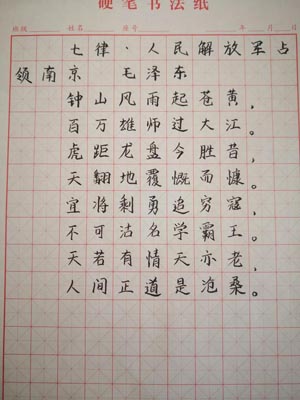 硬笔书法纸
班级 姓名 座号 年 月 日
七律·人民解放军占
领南京 毛泽东
钟山风雨起苍黄，
百万雄师过大江。
虎距龙盘今胜昔，
天翻地覆慨而慷。
宜将剩勇追穷寇，
不可沽名学霸王。
天若有情天亦老，
人间正道是沧桑。